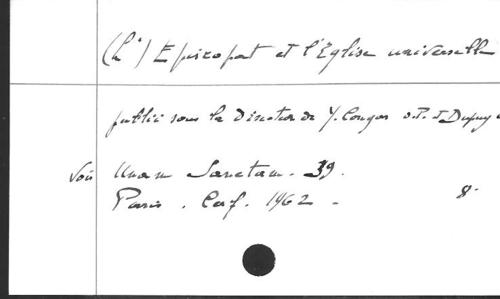 (L') Episcopat et l'Église universelle
publié sous la Direction de Y. Congar o.P. & Dupuy
Voir Unam Sanctam. 39.
Paris. Cerf. 1962 - 8°